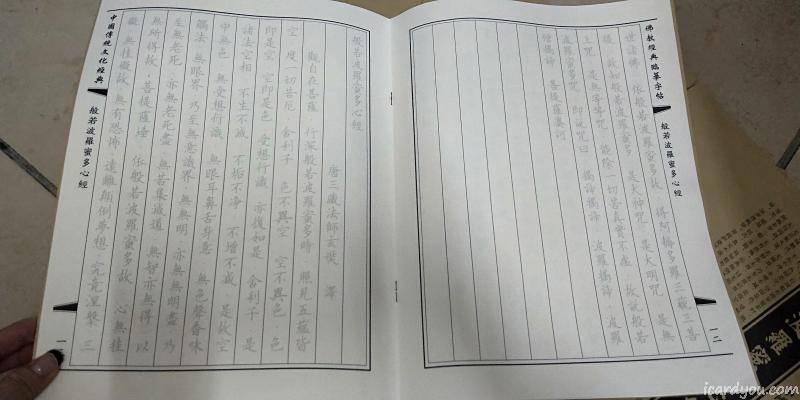 中國傳統文化經典
般若波羅蜜多心經
一
般若波羅蜜多心經
唐三藏法師玄奘 譯
觀自在菩薩 行深般若波羅蜜多時 照見五蘊皆
空 度一切苦厄 舍利子 色不異空 空不異色 色
即是空 空即是色 受想行識 亦復如是 舍利子 是
諸法空相 不生不滅 不垢不淨 不增不減 是故空
中無色 無受想行識 無眼耳鼻舌身意 無色聲香味
觸法 無眼界 乃至無意識界 無無明 亦無無明盡 乃
至無老死 亦無老死盡 無苦集滅道 無智亦無得 以
無所得故 菩提薩埵 依般若波羅蜜多故 心無挂
礙 無挂礙故 無有恐怖 遠離顛倒夢想 究竟涅槃 三
佛教經典臨摹字帖
般若波羅蜜多心經
二
世諸佛 依般若波羅蜜多故 得阿耨多羅三藐三菩
提 故知般若波羅蜜多 是大神咒 是大明咒 是無
上咒 是無等等咒 能除一切苦真實不虛 故說般若
波羅蜜多咒 即說咒曰 揭諦揭諦 波羅揭諦 波羅
僧揭諦 菩提薩婆訶
icardyou.com